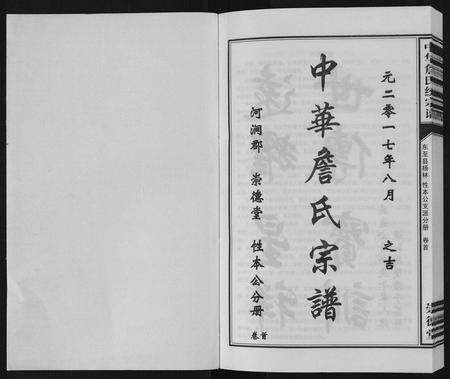 元二零一七年八月　之吉
中華詹氏宗譜
河澗郡　崇德堂　性本公分册
卷首
东至县杨林　性本公支派分册　卷首
崇德堂